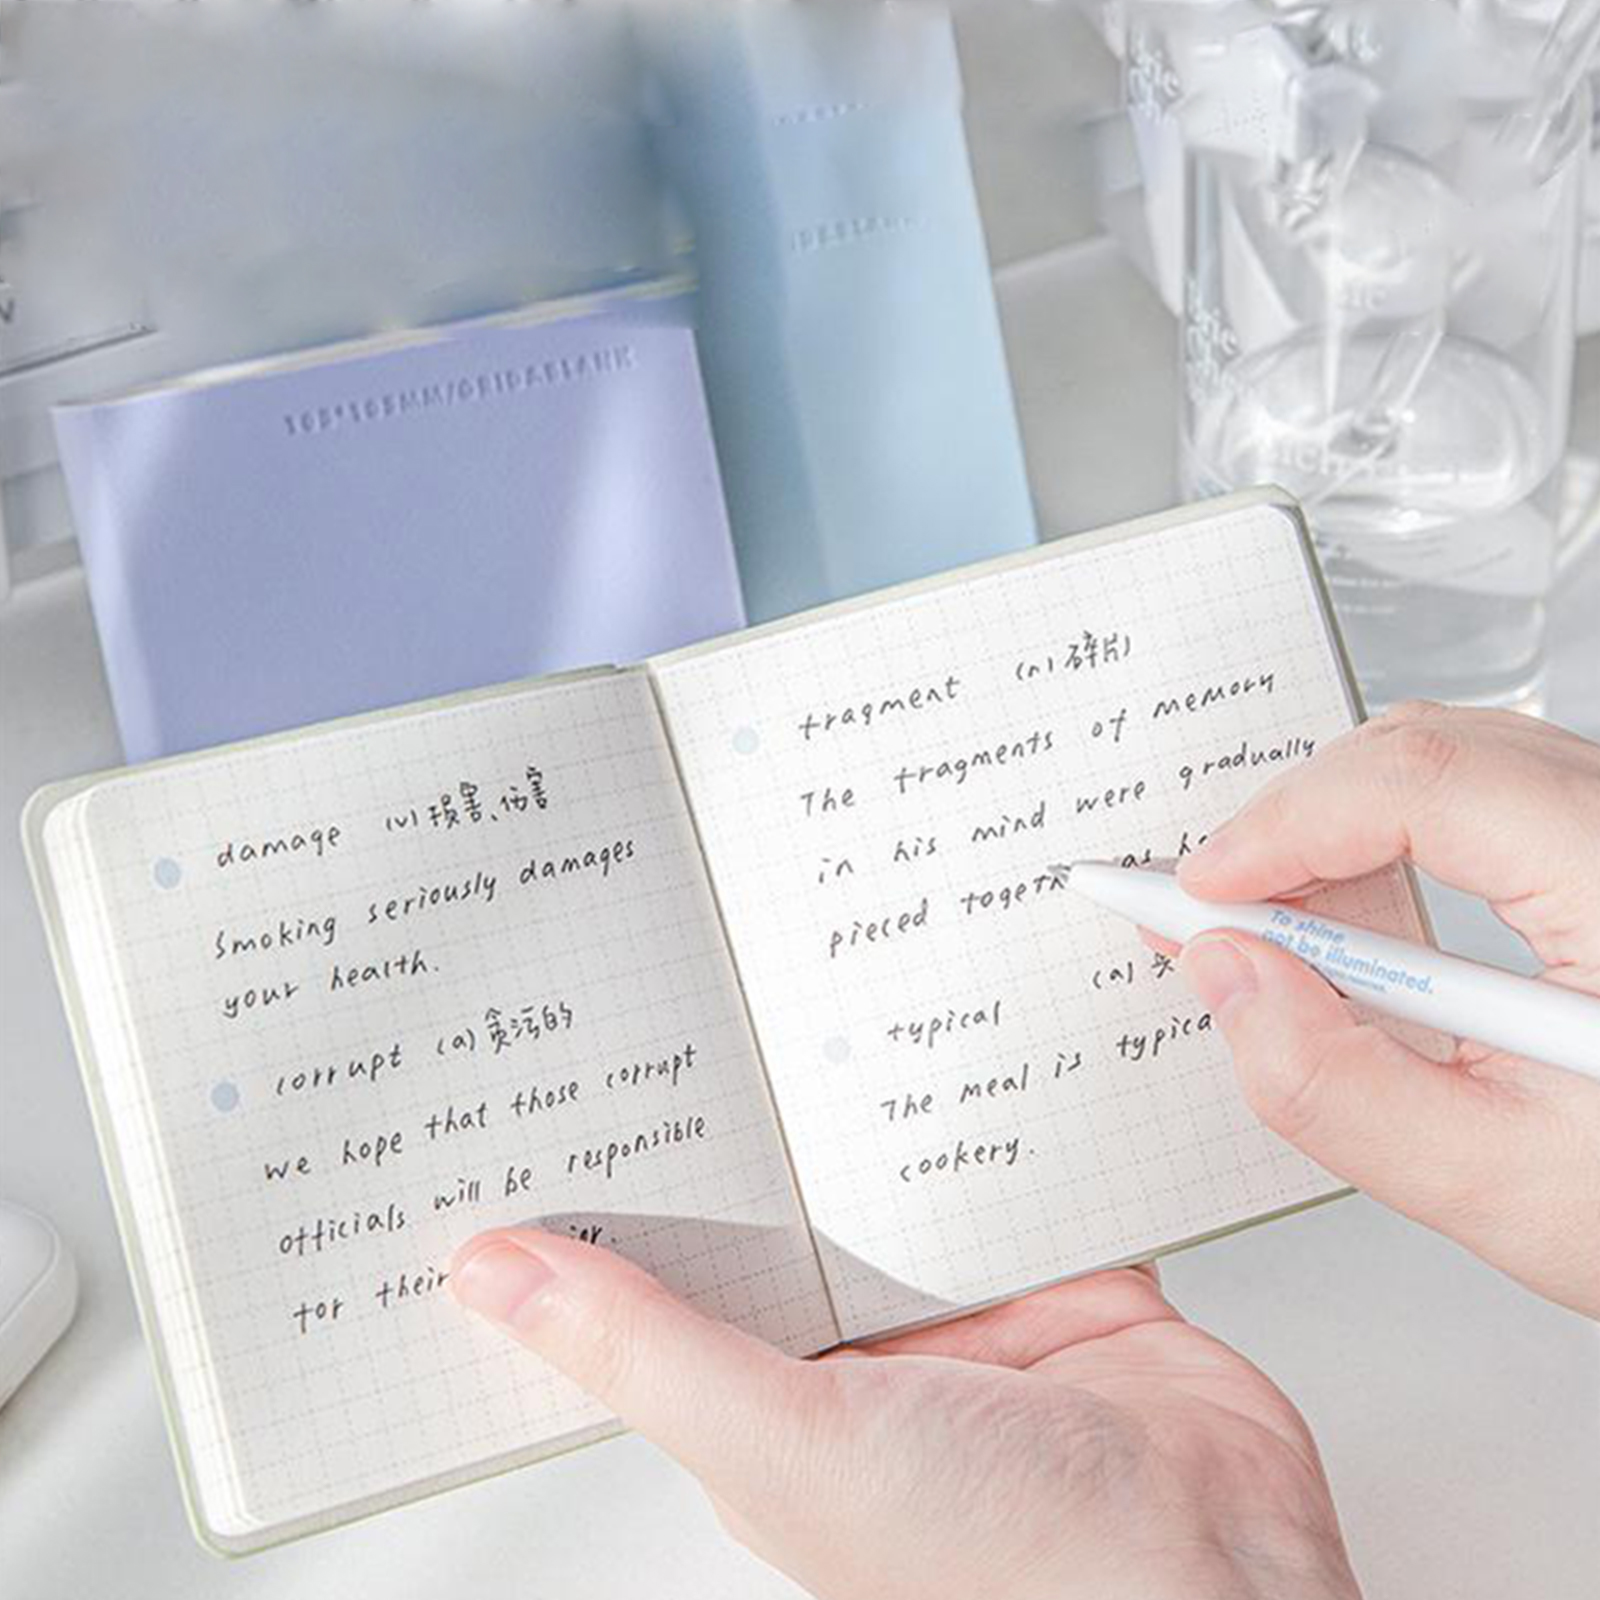 105*105MM/GRID&BLANK
damage (v) 损害、伤害
Smoking seriously damages
your health.
corrupt (a) 贪污的
we hope that those corrupt
officials will be responsible
for their
fragment (n) 碎片
The fragments of memory
in his mind were gradually
pieced together as
typical (a)
The meal is
cookery.
To shine
not be illuminated.